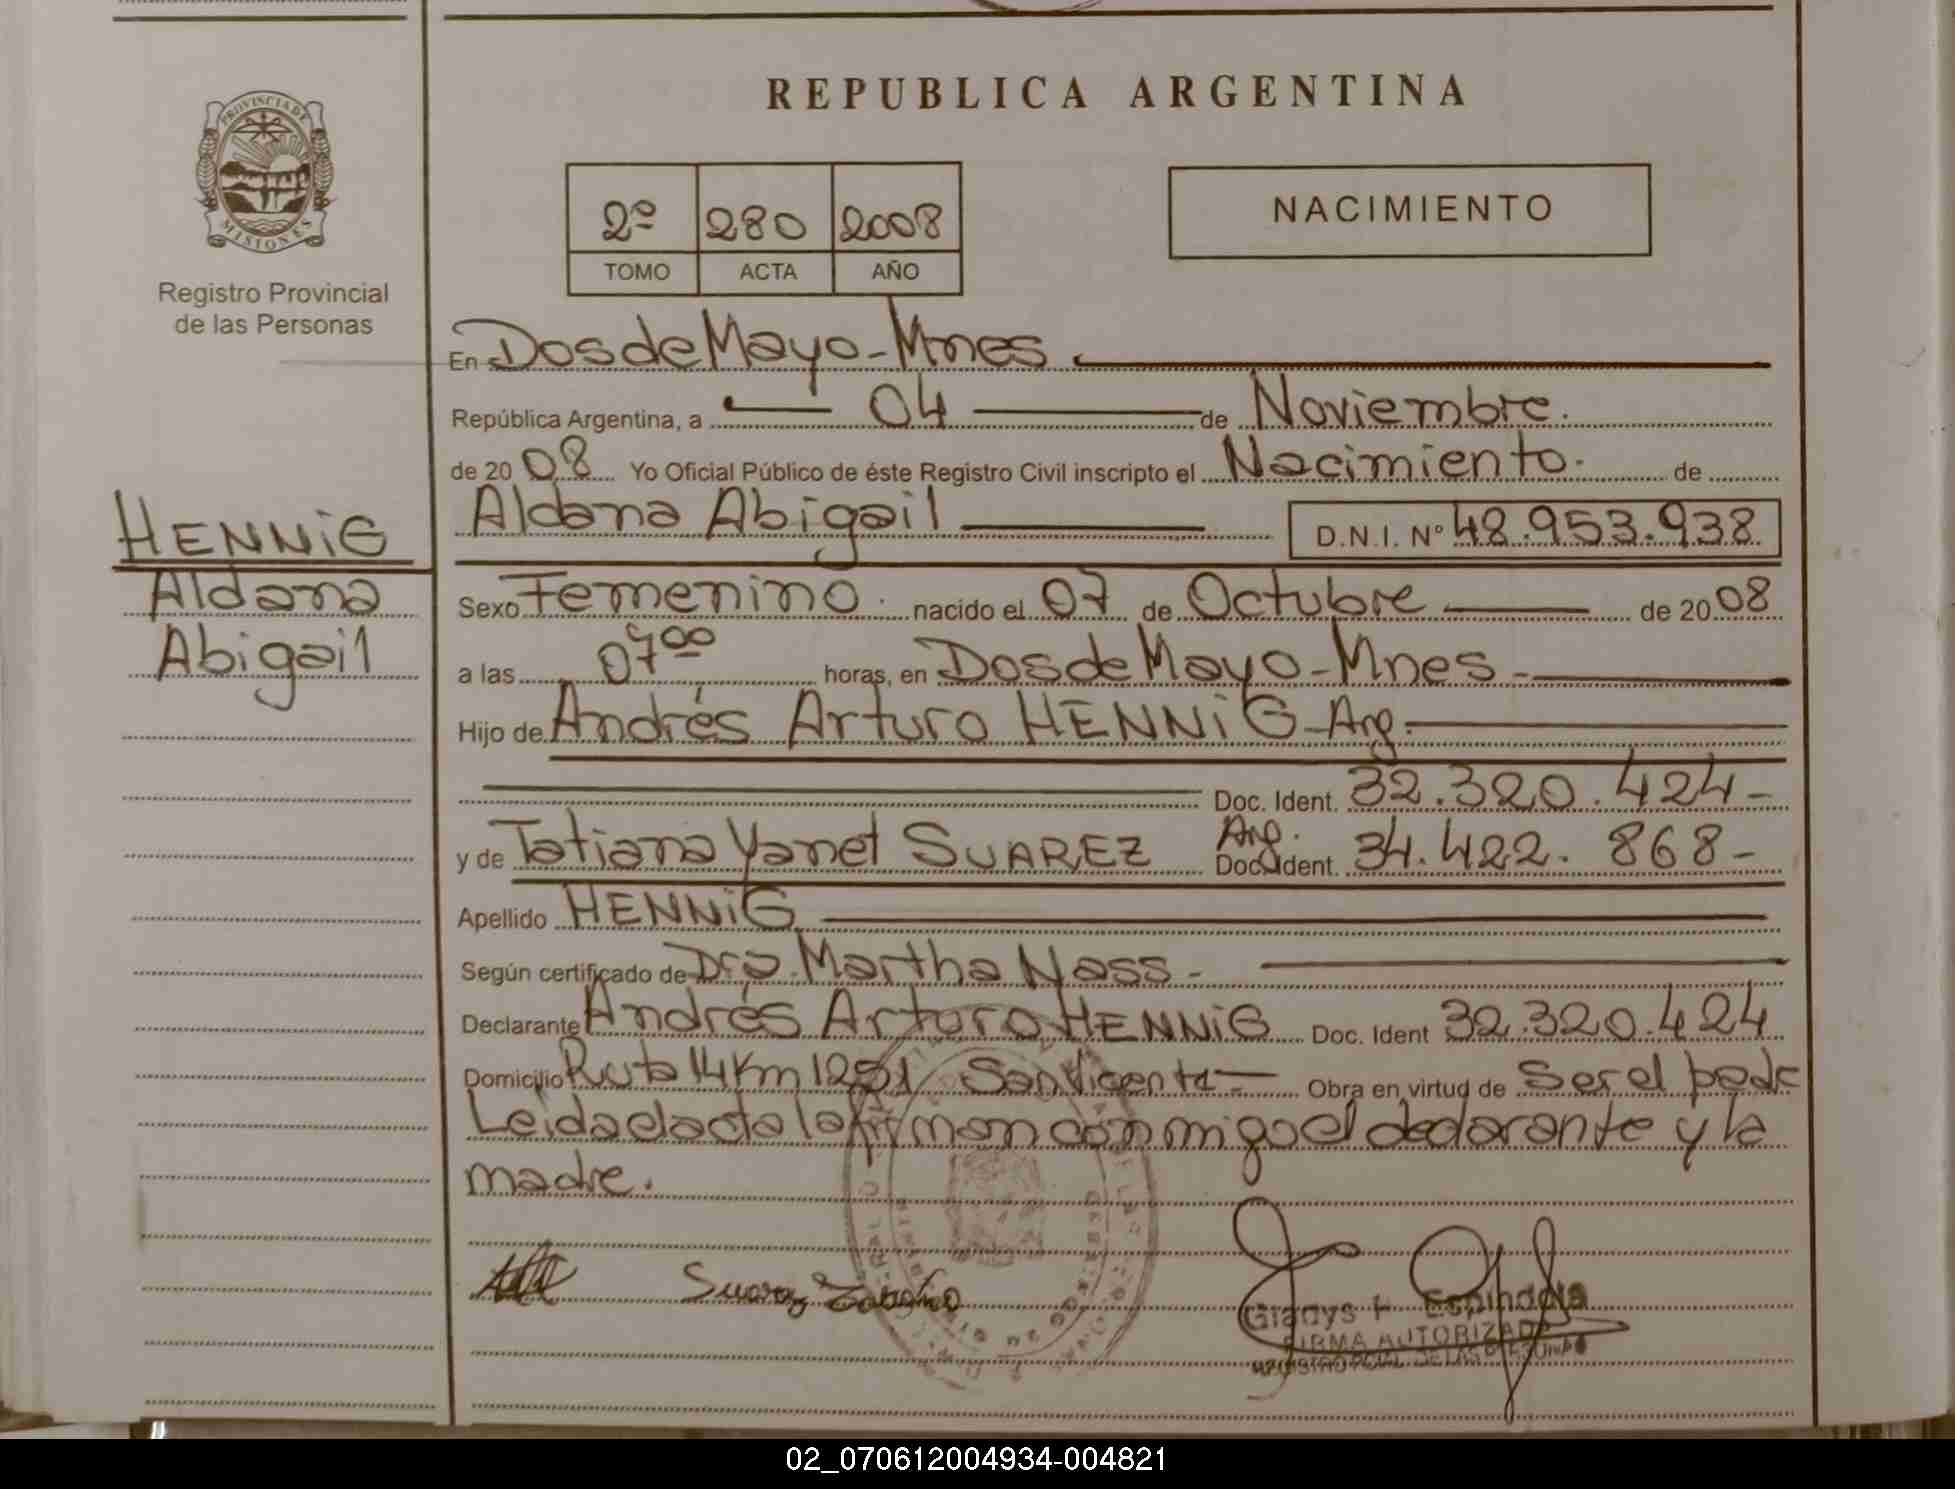 PROVINCIA DE
MISIONES
Registro Provincial
de las Personas
HENNiG
Aldana
Abigail
REPUBLICA ARGENTINA
2º 280 2008
TOMO ACTA AÑO
NACIMIENTO
En Dos de Mayo - Mnes
República Argentina, a 04 de Noviembre.
de 20 08 Yo Oficial Público de éste Registro Civil inscripto el Nacimiento. de
Aldana Abigail D.N.I. Nº 48.953.938
Sexo Femenino. nacido el 07 de Octubre de 20 08
a las 07 00 horas, en Dos de Mayo - Mnes -
Hijo de Andrés Arturo HENNiG - Arg.
Doc. Ident. 32.320.424-
y de Tatiana Yanet SUAREZ Arg. Doc. Ident. 34.422.868-
Apellido HENNiG
Según certificado de Dra. Martha Nass -
Declarante Andrés Arturo HENNiG Doc. Ident 32.320.424
Domicilio Ruta 14 Km 1251 San Vicente - Obra en virtud de Ser el padre
Leida el acta la firman conmigo el declarante y la
madre.
Suarez Tatiana
Gladys F. Espindola
FIRMA AUTORIZADA
02_070612004934-004821